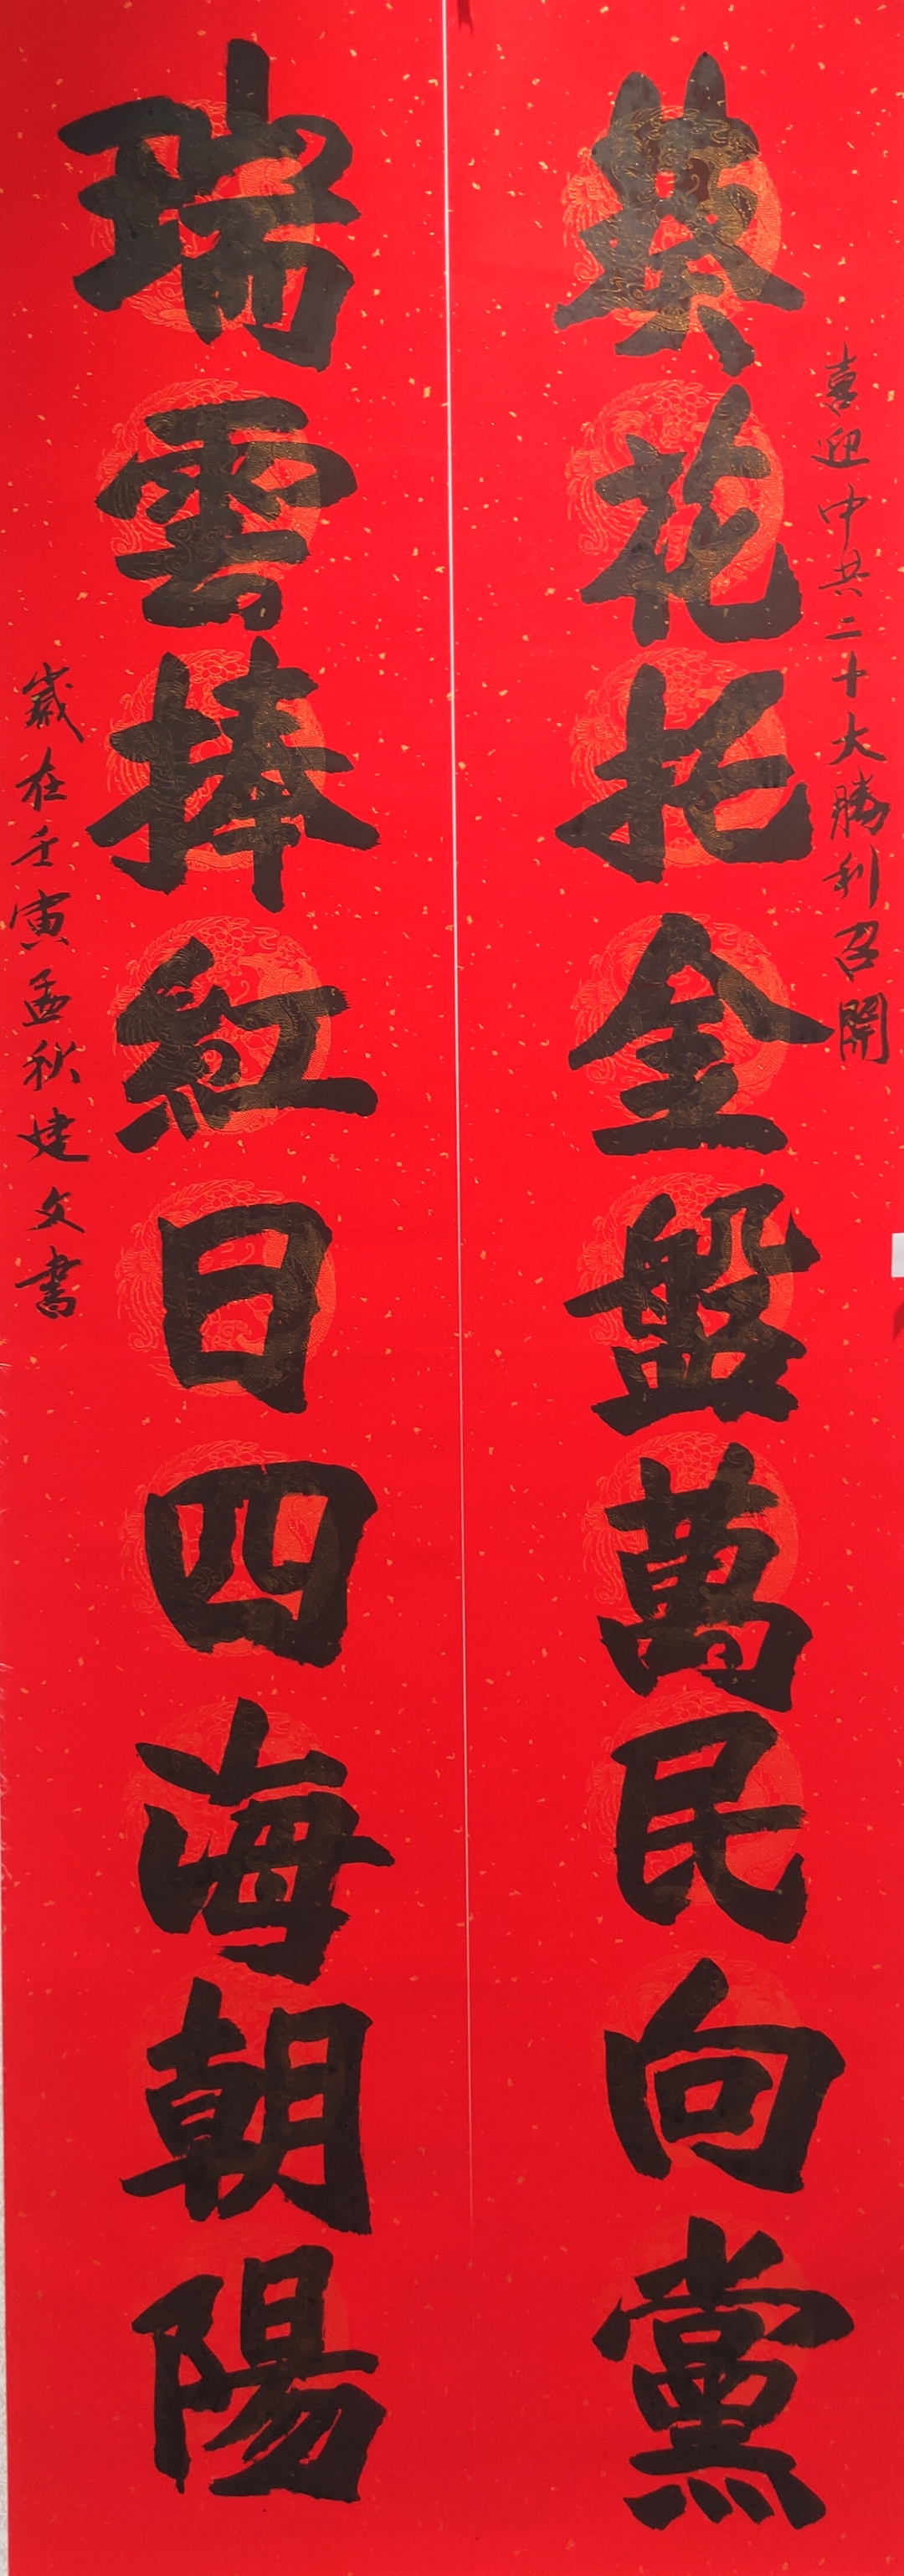 喜迎中共二十大勝利召開
葵花托金盤萬民向黨
瑞雲捧紅日四海朝陽
歲在壬寅孟秋建文書